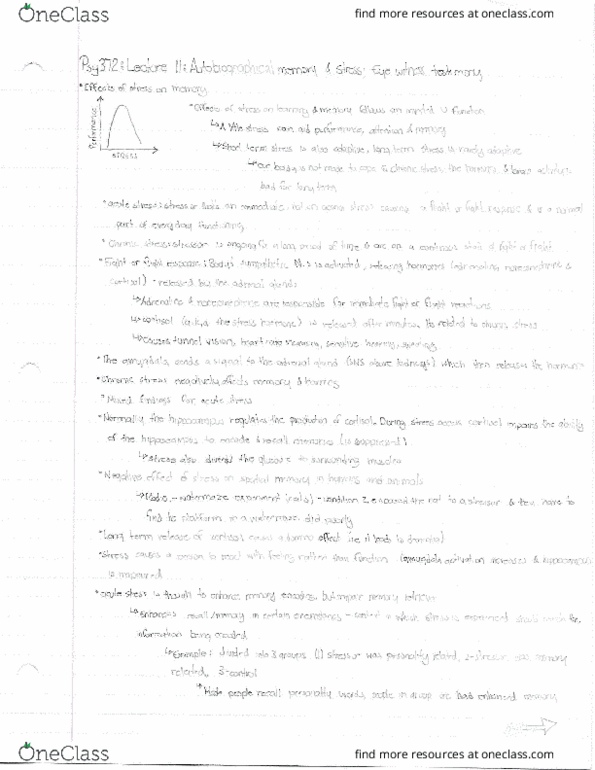 OneClass
find more resources at oneclass.com
Psy372: Lecture 11: Autobiographical memory & stress; Eye witness testimony
• Effects of stress on memory
Performance
stress
• Effects of stress on learning & memory follows an inverted U function
↳ A little stress can aid performance, attention & memory
↳ Short term stress is also adaptive, long term stress is rarely adaptive
↳ our body is not made to cope chronic stress, the hormones & brain activity is
bad for long term
• acute stress: stressor has an immediate, causes a fight or flight response & is a normal
part of everyday functioning
• Chronic stress: stressor is ongoing for a long period of time & are on a continuous state of fight or flight
• Fight or flight response: Body's sympathetic N.S is activated, releasing hormones (adrenaline, norepinephrine &
cortisol) - released by the adrenal glands
↳ Adrenaline & norepinephrine are responsible for immediate fight or flight reactions
↳ cortisol (a.k.a the stress hormone) is released after minutes. Its related to chronic stress
↳ Causes tunnel vision, sensitive hearing,
• The amygdala sends a signal to the adrenal gland which then releases the hormones
• Chronic stress negatively effects memory & learning
• Mixed findings for acute stress
• Normally the hippocampus regulates the production of cortisol. During stress excess cortisol impairs the ability
of the hippocampus to encode & recall memories
↳ Stress also diverts the glucose to surrounding muscles
• Negative effect of stress on spatial memory in humans and animals
watermaze experiment (rats) - condition 2 exposed the rat to a stressor & then have to
find the platforms in a watermaze, did poorly
• Long term release of cortisol cause a domino effect
• Stress causes a person to react with feeling rather than function (amygdala activation increases & hippocampus
is impaired
• acute stress is thought to enhance memory encoding, but impair memory retrieval
↳ Enhances recall/memory in certain
information being encoded
↳ Example: divided into 3 groups (1) stressor was personality related, 2-stressor was memory
related, 3-control
↳ Made people recall personality words, people in group one had enhanced memory
OneClass
find more resources at oneclass.com